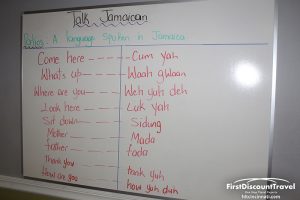 Talk Jamaican
Patties - A language Spoken in Jamaica
Come here - Cum yah
What's up - Waah gwaan
Where are you - Weh yah deh
Look here - Luk yah
Sit down - Sidung
Mother - Mada
father - fada
Thank you - tank yuh
How are you - how yuh duh
FirstDiscountTravel